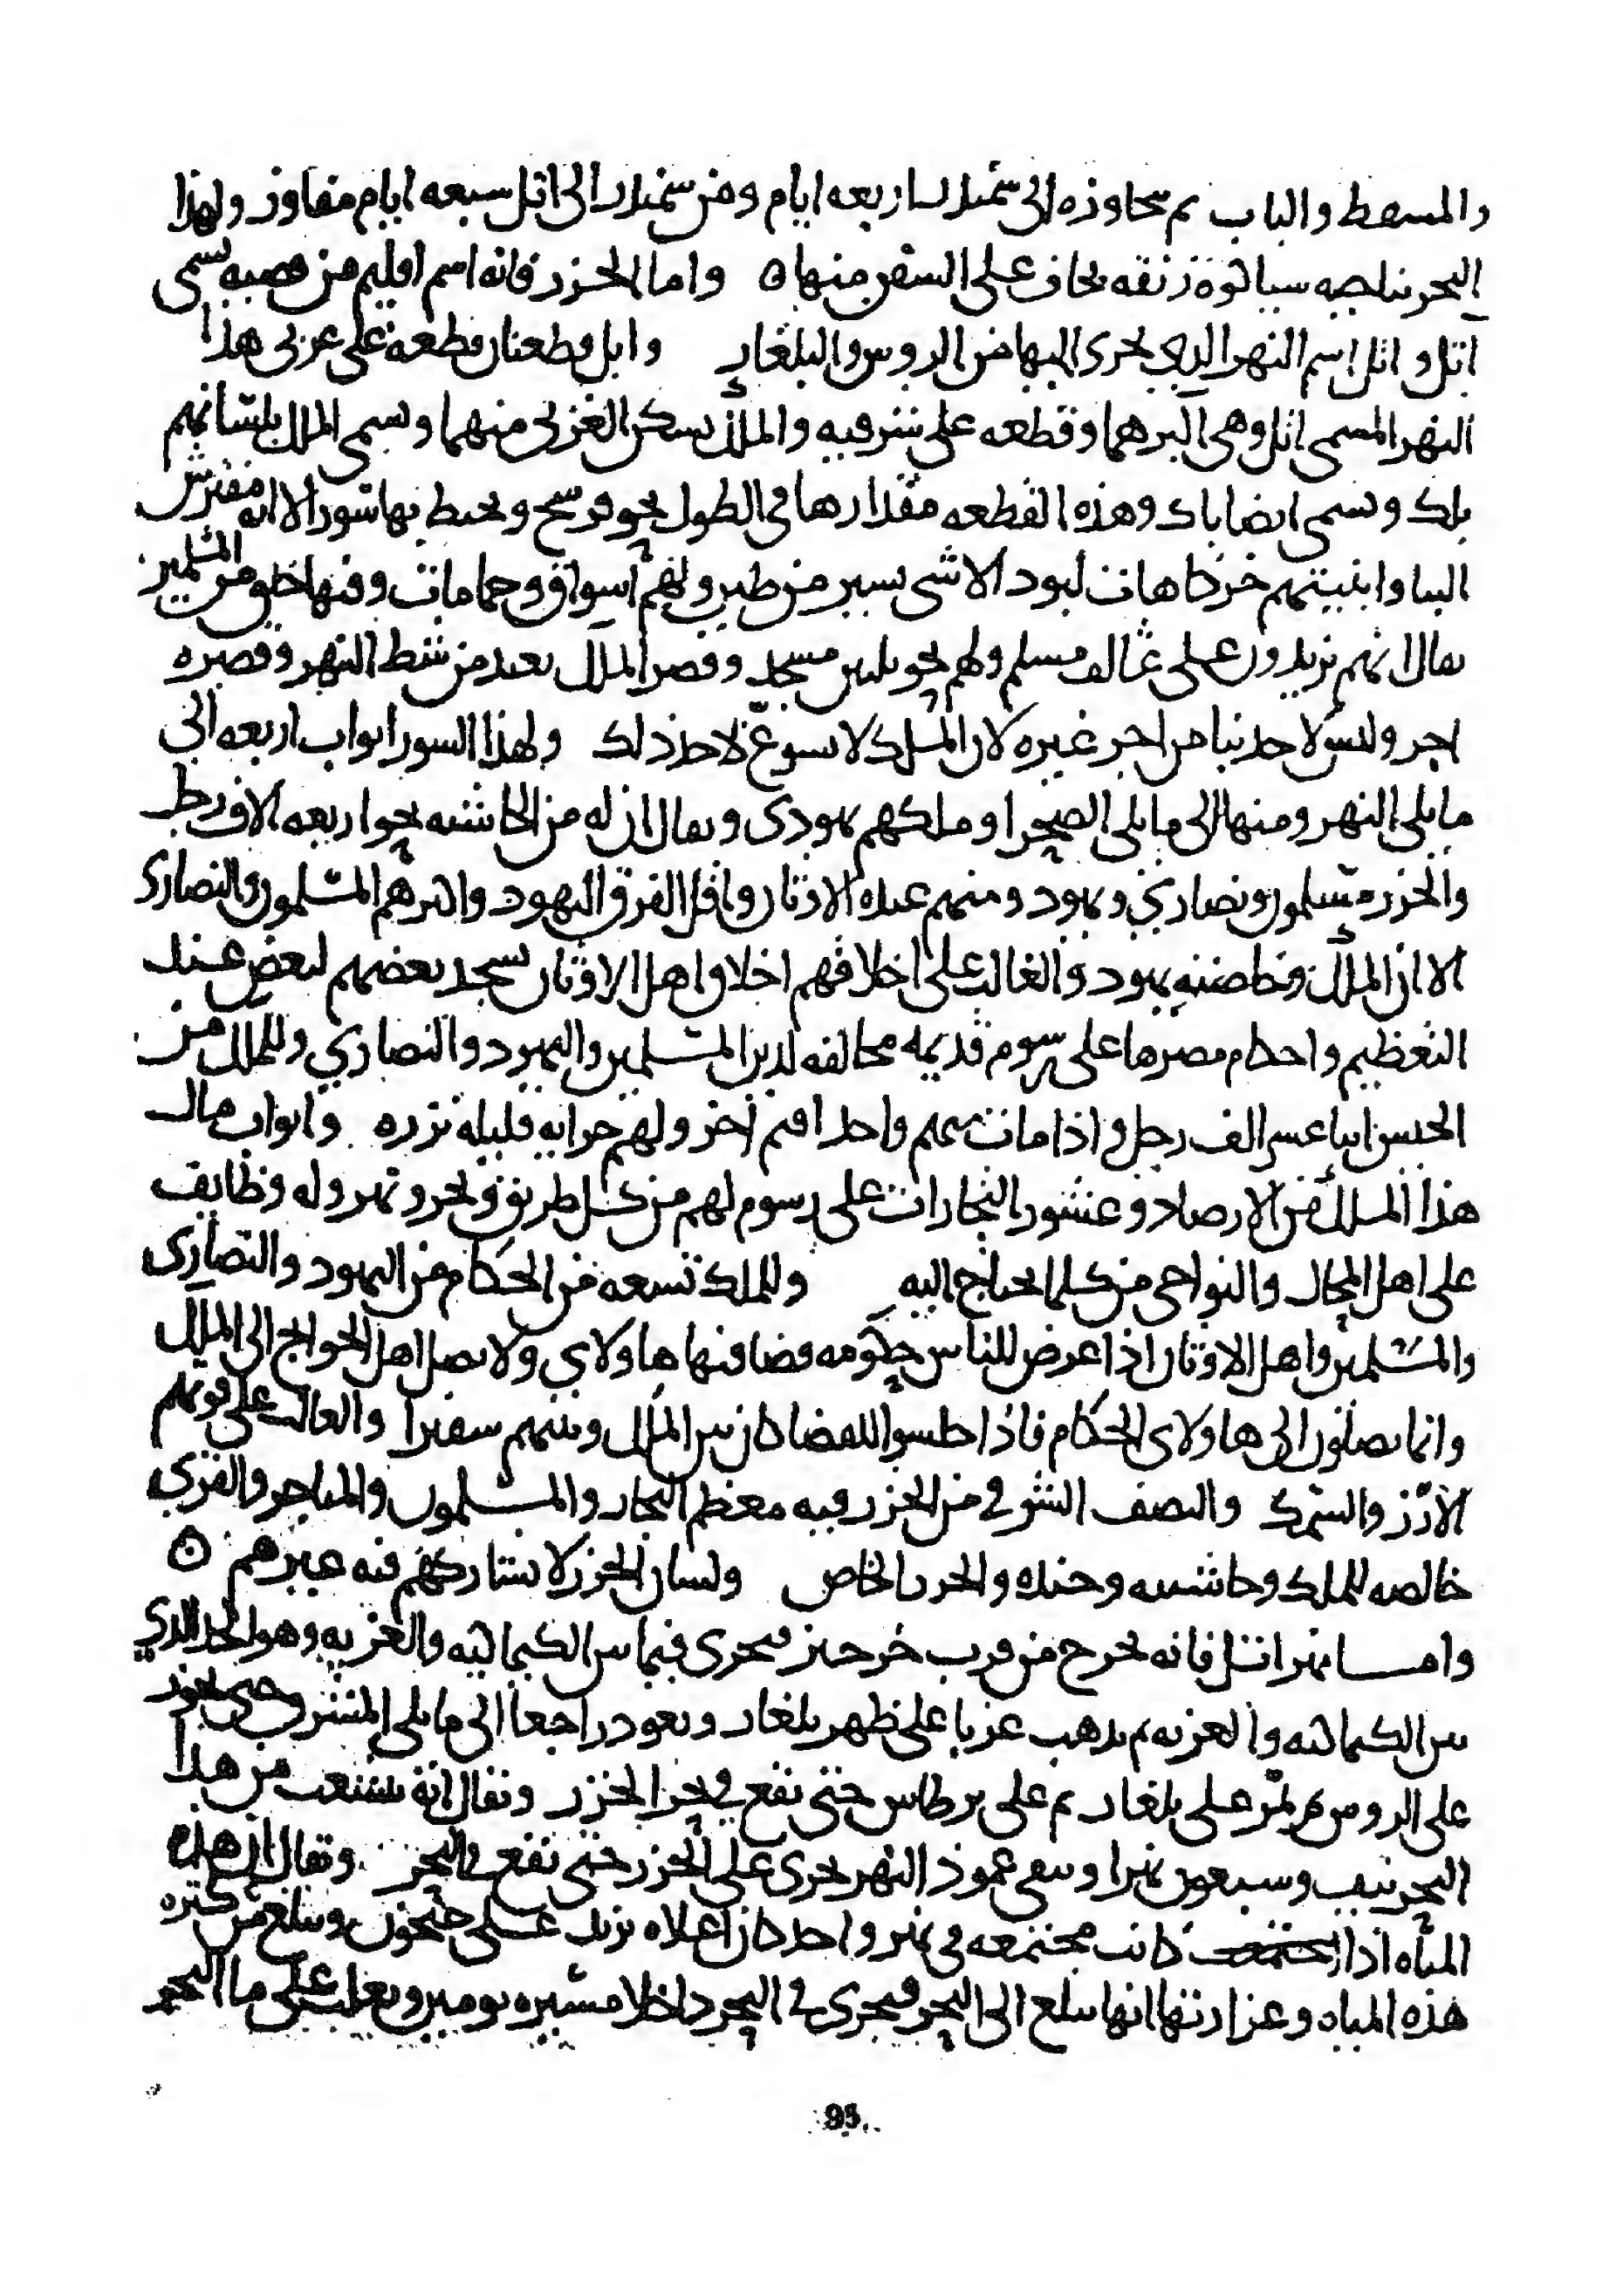 والمسقط والباب ثم تجاوزه الى سمندر اربعه ايام ومن سمندر الى اتل سبعه ايام مفاوز ولهذا
البحر بناحيه سياكوه زنقه يخاف على السفن منها ٥ واما الخزر فانه اسم اقليم من قصبه تسمى
اتل واتل اسم النهر الذي يجرى اليها من الروس والبلغار واتل قطعتان قطعه على غربى هذا
النهر المسمى اتل وهى اكبرهما وقطعه على شرقيه والملك يسكن الغربى منهما ويسمى الملك بلسانهم
بلك ويسمى ايضا باك وهذه القطعه مقدارها فى الطول نحو فرسخ ويحيط بها سور الا انه مفترش
البنا وابنيتهم خركاهات لبود الا شى يسير من طين ولهم اسواق وحمامات وفيها خلق من المسلمين
يقال انهم يزيدون على عشرة الف مسلم ولهم نحو ثلثين مسجد وقصر الملك بعيد من شط النهر وقصره
اجر وليس لاحد بنا من اجر غيره لان الملك لا يسوغ لاحد ذلك ولهذا السور ابواب اربعه الى
ما يلى النهر ومنها الى ما يلى الصحرا وملكهم يهودى ويقال ان له من الحاشيه نحو اربعه الاف رجل
والخزر مسلمون ونصارى ويهود ومنهم عبده الاوثان واقل الفرق اليهود واكثرهم المسلمون والنصارى
الا ان الملك وخاصته يهود والغالب على اخلاقهم اخلاق اهل الاوثان يسجد بعضهم لبعض عند
التعظيم واحكام مصرها على رسوم قديمه مخالفه لدين المسلمين واليهود والنصارى وللملك من
الجيش اثنا عشر الف رجل واذا مات منهم واحد اقيم آخر ولهم جرايه قليله نزره وابواب مال
هذا الملك من الارصاد وعشور التجارات على رسوم لهم من كل طريق وبحر ونهر وله وظايف
على اهل المحال والنواحى من كلما يحتاج اليه وللملك تسعه من الحكام من اليهود والنصارى
والمسلمين واهل الاوثان اذا عرض للناس حكومه قضا فيها هاولاى ولا يصل اهل الحوايج الى الملك
وانما يصلون الى هاولاى الحكام فاذا جلسوا للقضا كان بين الملك وبينهم سفيرا والغالب على قوتهم
الارز والسمك والنصف الشرقى من الخزر فيه معظم التجار والمسلمون والمتاجر والغربى
خالصه للملك وحاشيته وجنده والخزر الخاص ولسان الخزر لا يشاركهم فيه غيرهم ٥
وامــا نهر اتل فانه يخرج من قرب خرخيز فيجرى فيما بين الكيماكيه والغزيه وهو الحد الذي
بين الكيماكيه والغزيه ثم يذهب غربا على ظهر بلغار ويعود راجعا الى ما يلى المشرق حتى يجوز
على الروس ثم يمر على بلغار ثم على برطاس حتى يقع فى بحر الخزر ويقال انه يتشعب من هذا
البحر نيف وسبعون نهرا ويبقى عمود النهر يجرى على الخزر حتى يقع فى البحر ويقال ان هذه
المياه اذا كانت مجتمعه فى نهر واحد كان اعلاه يزيد على جيحون ويبلغ من كثره
هذه المياه وغزارتها انها تبلغ الى البحر فيجرى فى البحر داخلا مسيره يومين ويغلب على ما البحر
95